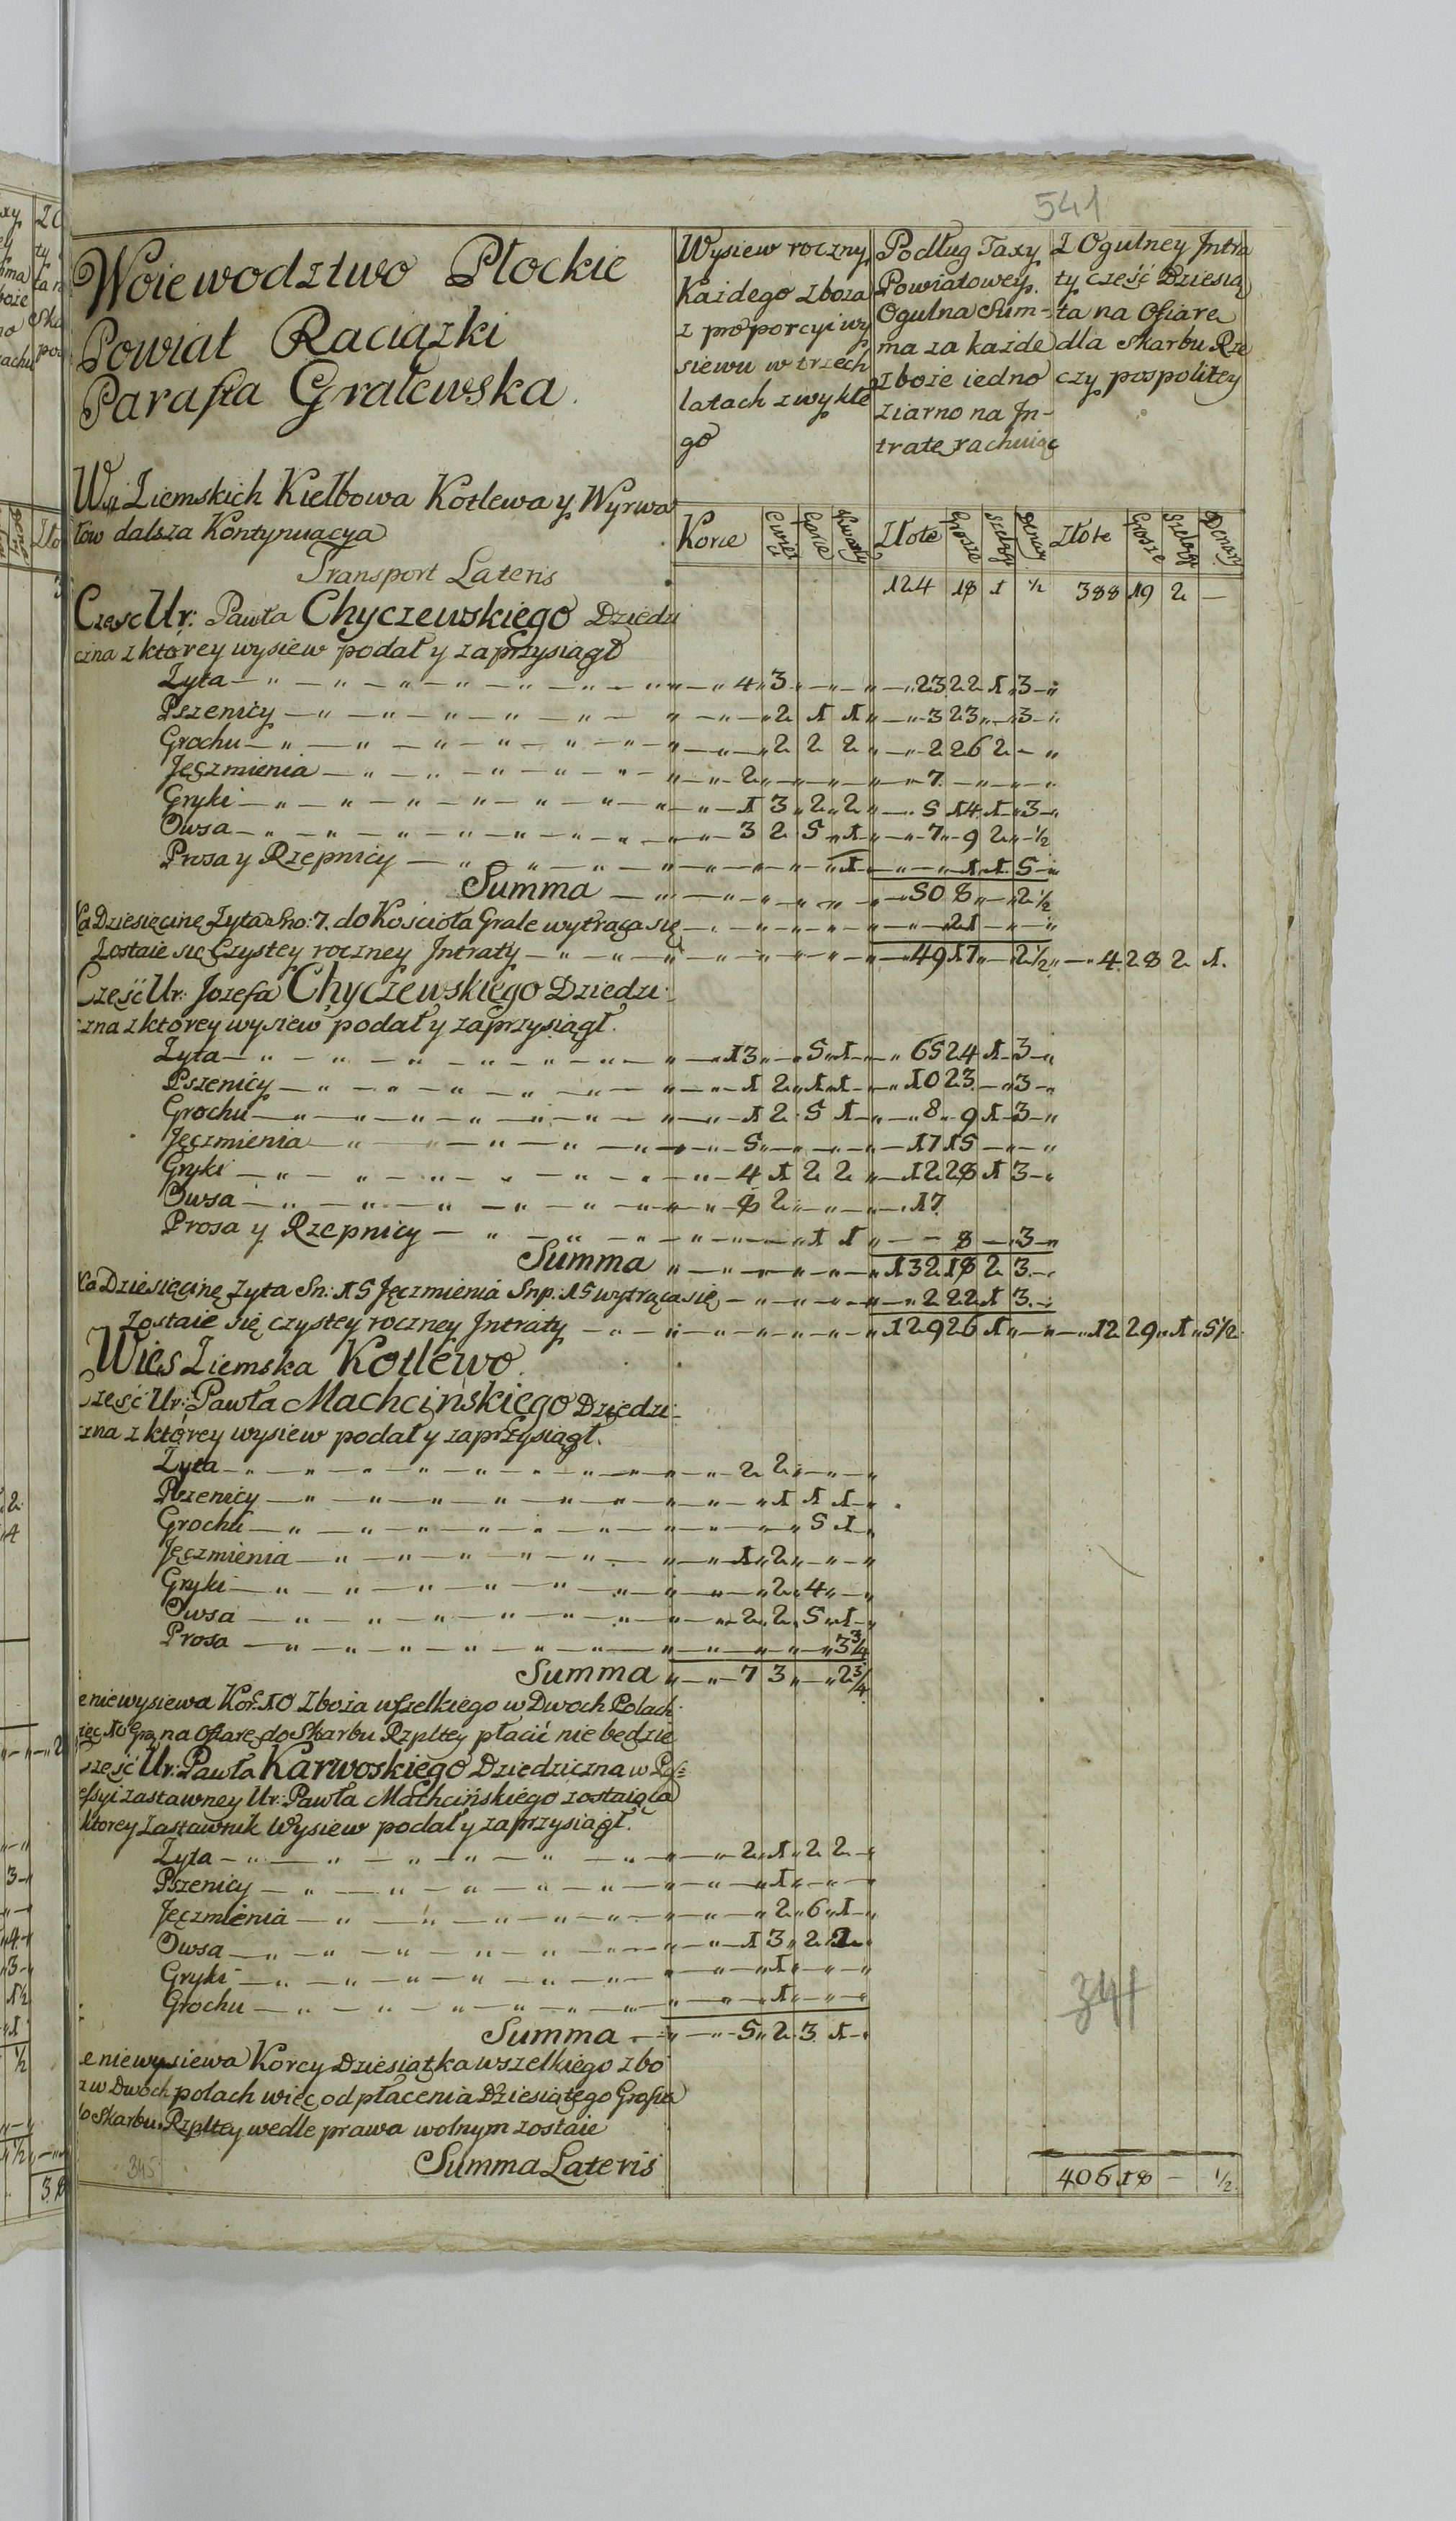 541
Woiewodztwo Płockie
Powiat Raciązki
Parafia Gralewska
Wysiew roczny
Kazdego zboza
z proporcyi wy
siewu w trzech
latach zwykłe
go
Podług Taxy
Powiatowey
Ogulna Sum-
ma za kazde
zboze iedno
ziarno na In-
tratę rachuiąc
Z Ogulney Intra
ty cześć Dziesią
ta na Ofiarę
dla Skarbu Rze
czy pospolitey
Wsi Ziemskich Kiełbowa Kotlewa y Wyrwa
łow dalsza Kontynuacya
Korce Cwiet Garce Kwarty Złote Grosze Szelągi Denary Złote Grosze Szelągi Denary
Transport Lateris 124 18 1 ½ 388 19 2 —
Czesc Ur: Pawła Chyczewskiego Dziedzi
czna z którey wysiew podał y zaprzysiągł
Zyta 4 3 23 22 1 3
Pszenicy 2 1 1 3 23 3
Grochu 2 2 2 2 26 2
Jęczmienia 2 7
Gryki 1 3 2 2 5 14 1 3
Owsa 3 2 5 1 7 9 2 ½
Prosa y Rzepnicy 1 1 1 5
Summa 50 8 2½
Za Dziesięcinę Zyta Sno: 7. do Kościoła Grale wytrąca się 21
Zostaie się Czystey roczney Intraty 49 17 2½ 4 28 2 1.
Cześć Ur: Jozefa Chyczewskiego Dziedzi-
czna z ktorey wysiew podał y zaprzysiągł.
Zyta 13 5 1 65 24 1 3
Pszenicy 1 2 1 1 10 23 3
Grochu 1 2 5 1 8 9 1 3
Jęczmienia 5 17 15
Gryki 4 1 2 2 12 28 1 3
Owsa 8 2 17
Prosa y Rzepnicy 1 1 8 3
Summa 132 18 2 3
Za Dziesięcinę Zyta Sn: 15 Jęczmienia Snp: 15 wytrąca się 2 22 1 3
Zostaie się czystey roczney Intraty 129 26 1 12 29 1 5½
Wies Ziemska Kotlewo.
Cześć Ur: Pawła Machcińskiego Dziedzi-
czna z którey wysiew podał y zaprzysiągł.
Zyta 2 2
Pszenicy 1 1 1
Grochu 5 1
Jęczmienia 1 2
Gryki 2 4
Owsa 2 2 5 1
Prosa 3¾
Summa 7 3 2¾
e niewysiewa Kor: 10 Zboża wszelkiego w Dwoch Polach
więc 10 Gro na Ofiarę do Skarbu Rzpltey płacić nie będzie
Cześć Ur: Pawła Karwoskiego Dziedziczna w Pos=
essyi zastawney Ur: Pawła Machcińskiego zostaiąca
ktorey Zastawnik Wysiew podał y zaprzysiągł.
Zyta 2 1 2 2
Pszenicy 1
Jęczmienia 2 6 1
Owsa 1 3 2 2
Gryki 1
Grochu 1
Summa 5 2 3 1
e niewysiewa Korcy Dziesiątka wszelkiego zbo
za w Dwoch polach więc od płacenia Dziesiątego Grosza
do Skarbu Rzpltey wedle prawa wolnym zostaie
341
345
Summa Lateris 406 18 — ½